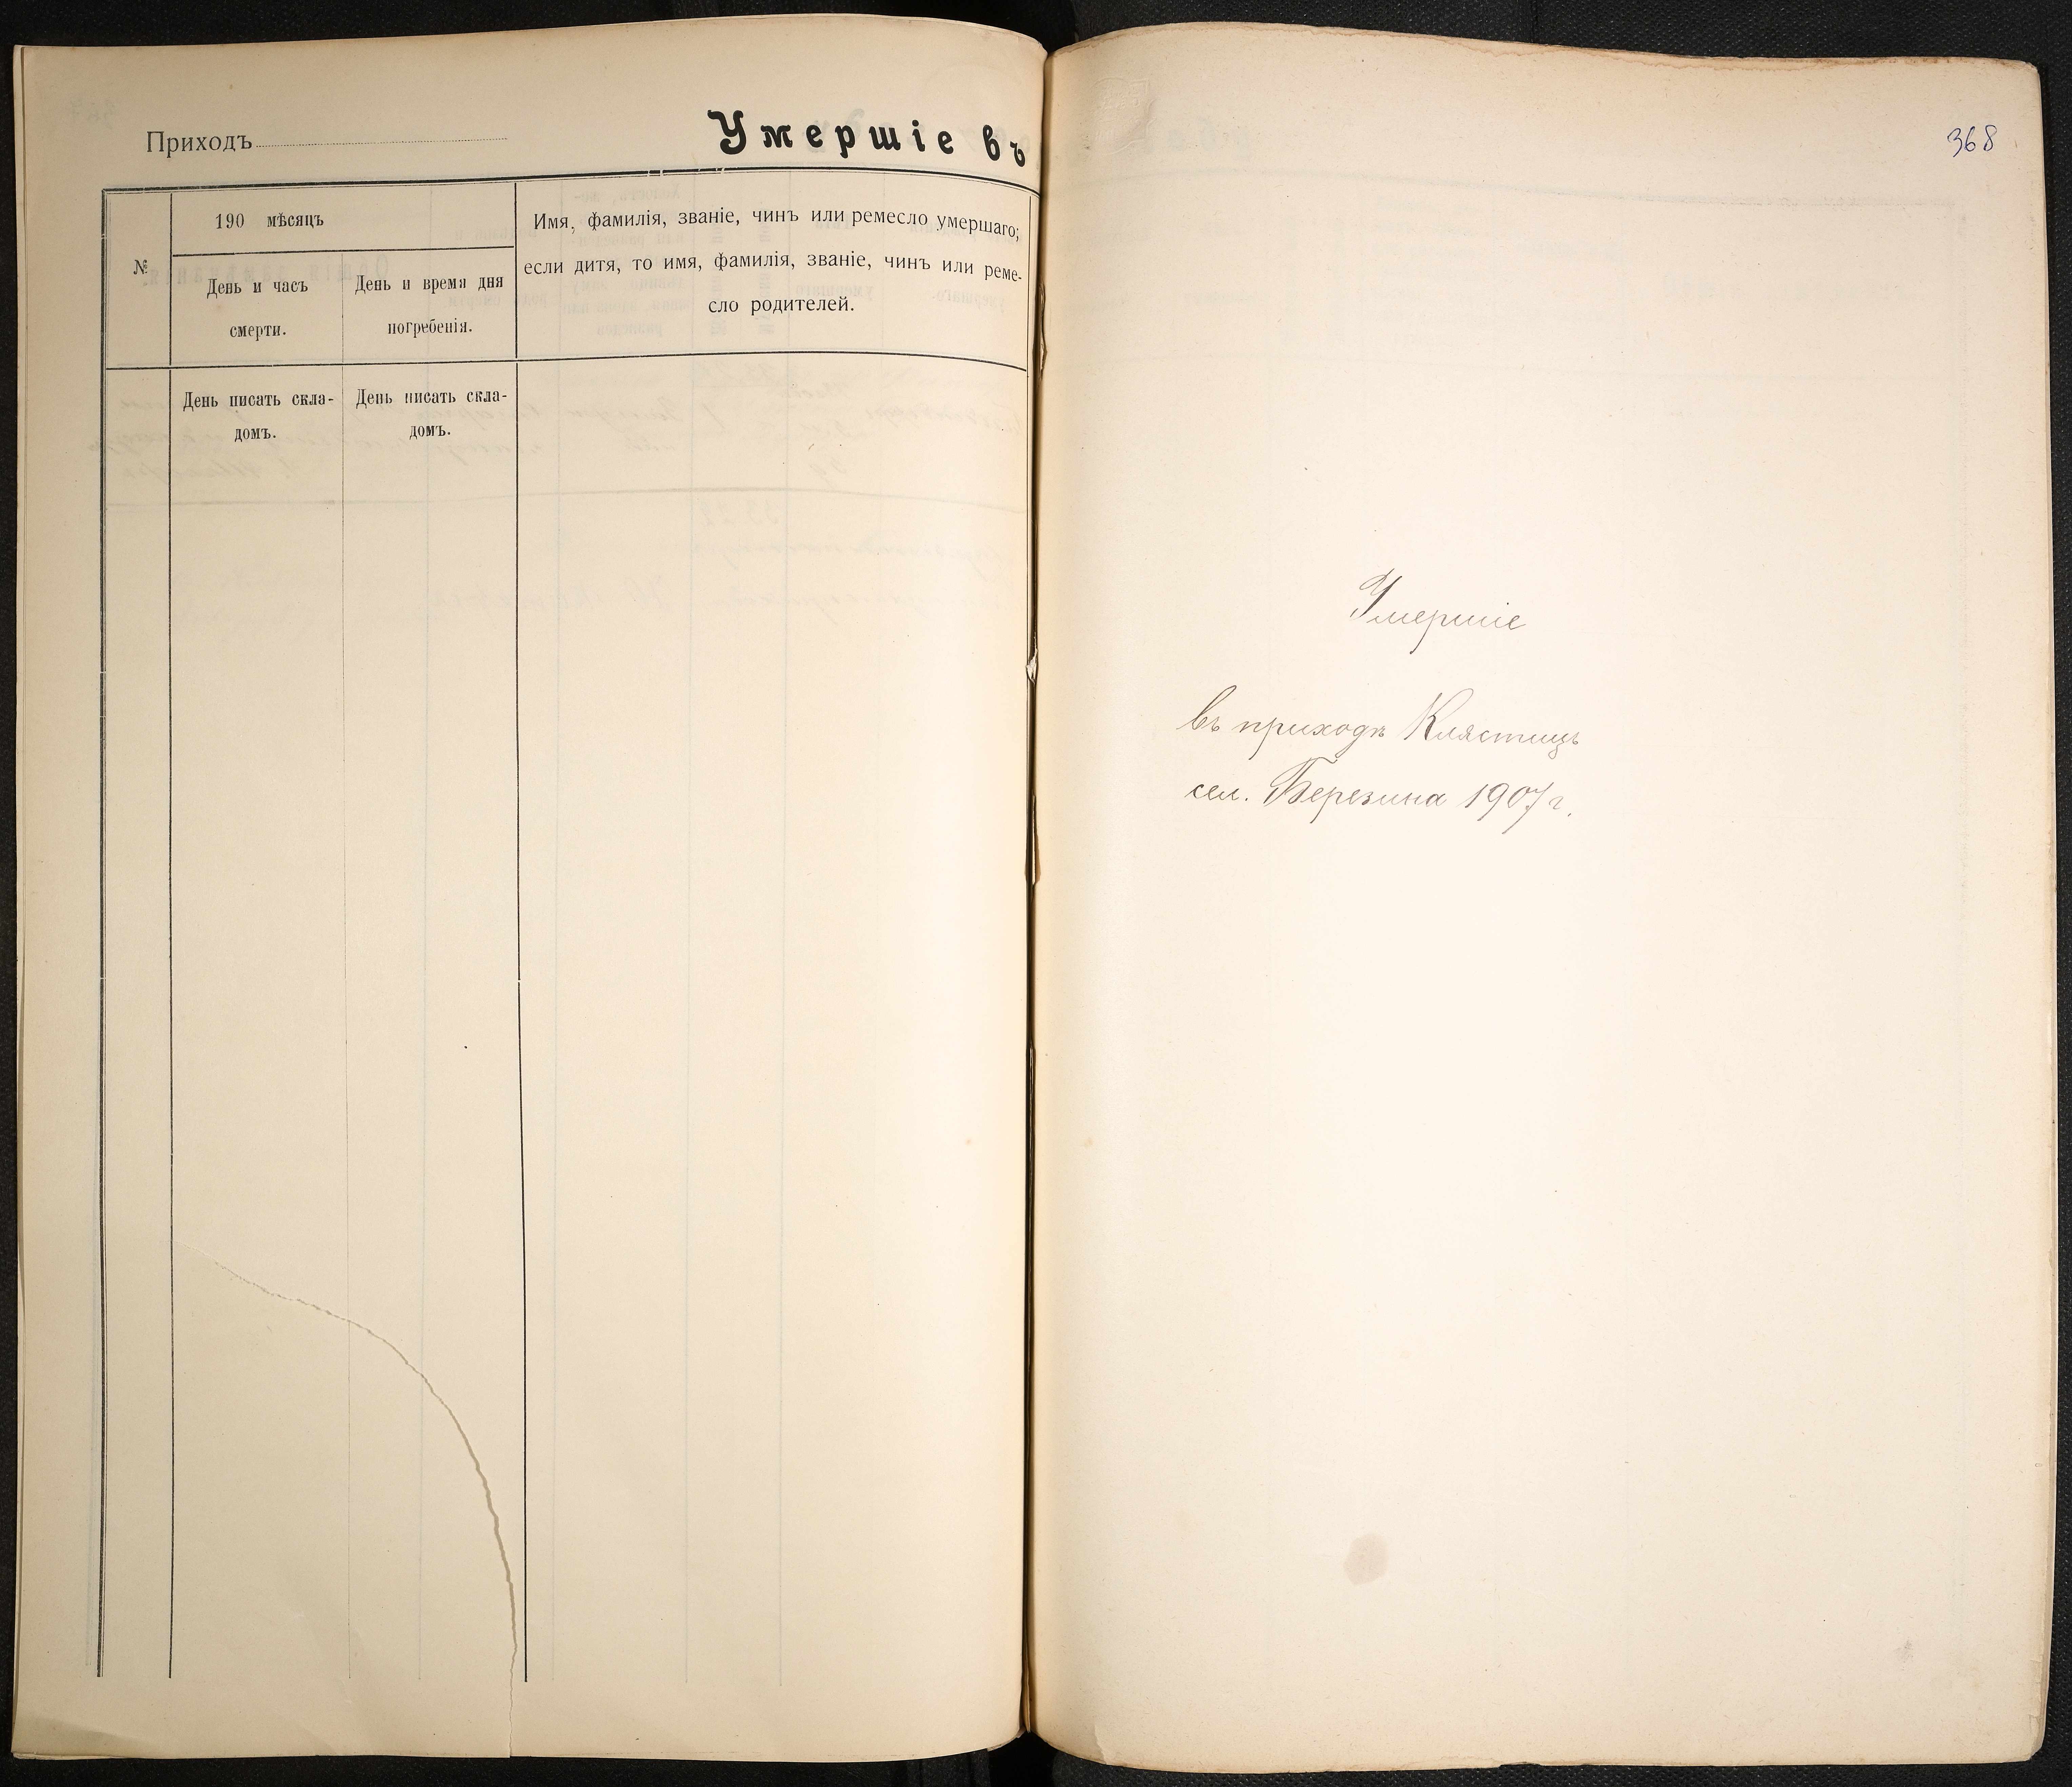 Приходъ
Умершіе въ
№
190 мѣсяцъ
День и часъ
смерти.
День и время дня
погребенія.
Имя, фамилія, званіе, чинъ или ремесло умершаго;
если дитя, то имя, фамилія, званіе, чинъ или реме-
сло родителей.
День писать скла-
домъ.
День писать скла-
домъ.
368
Умершіе
въ приходѣ Клястицъ
сел. Березина 1907 г.